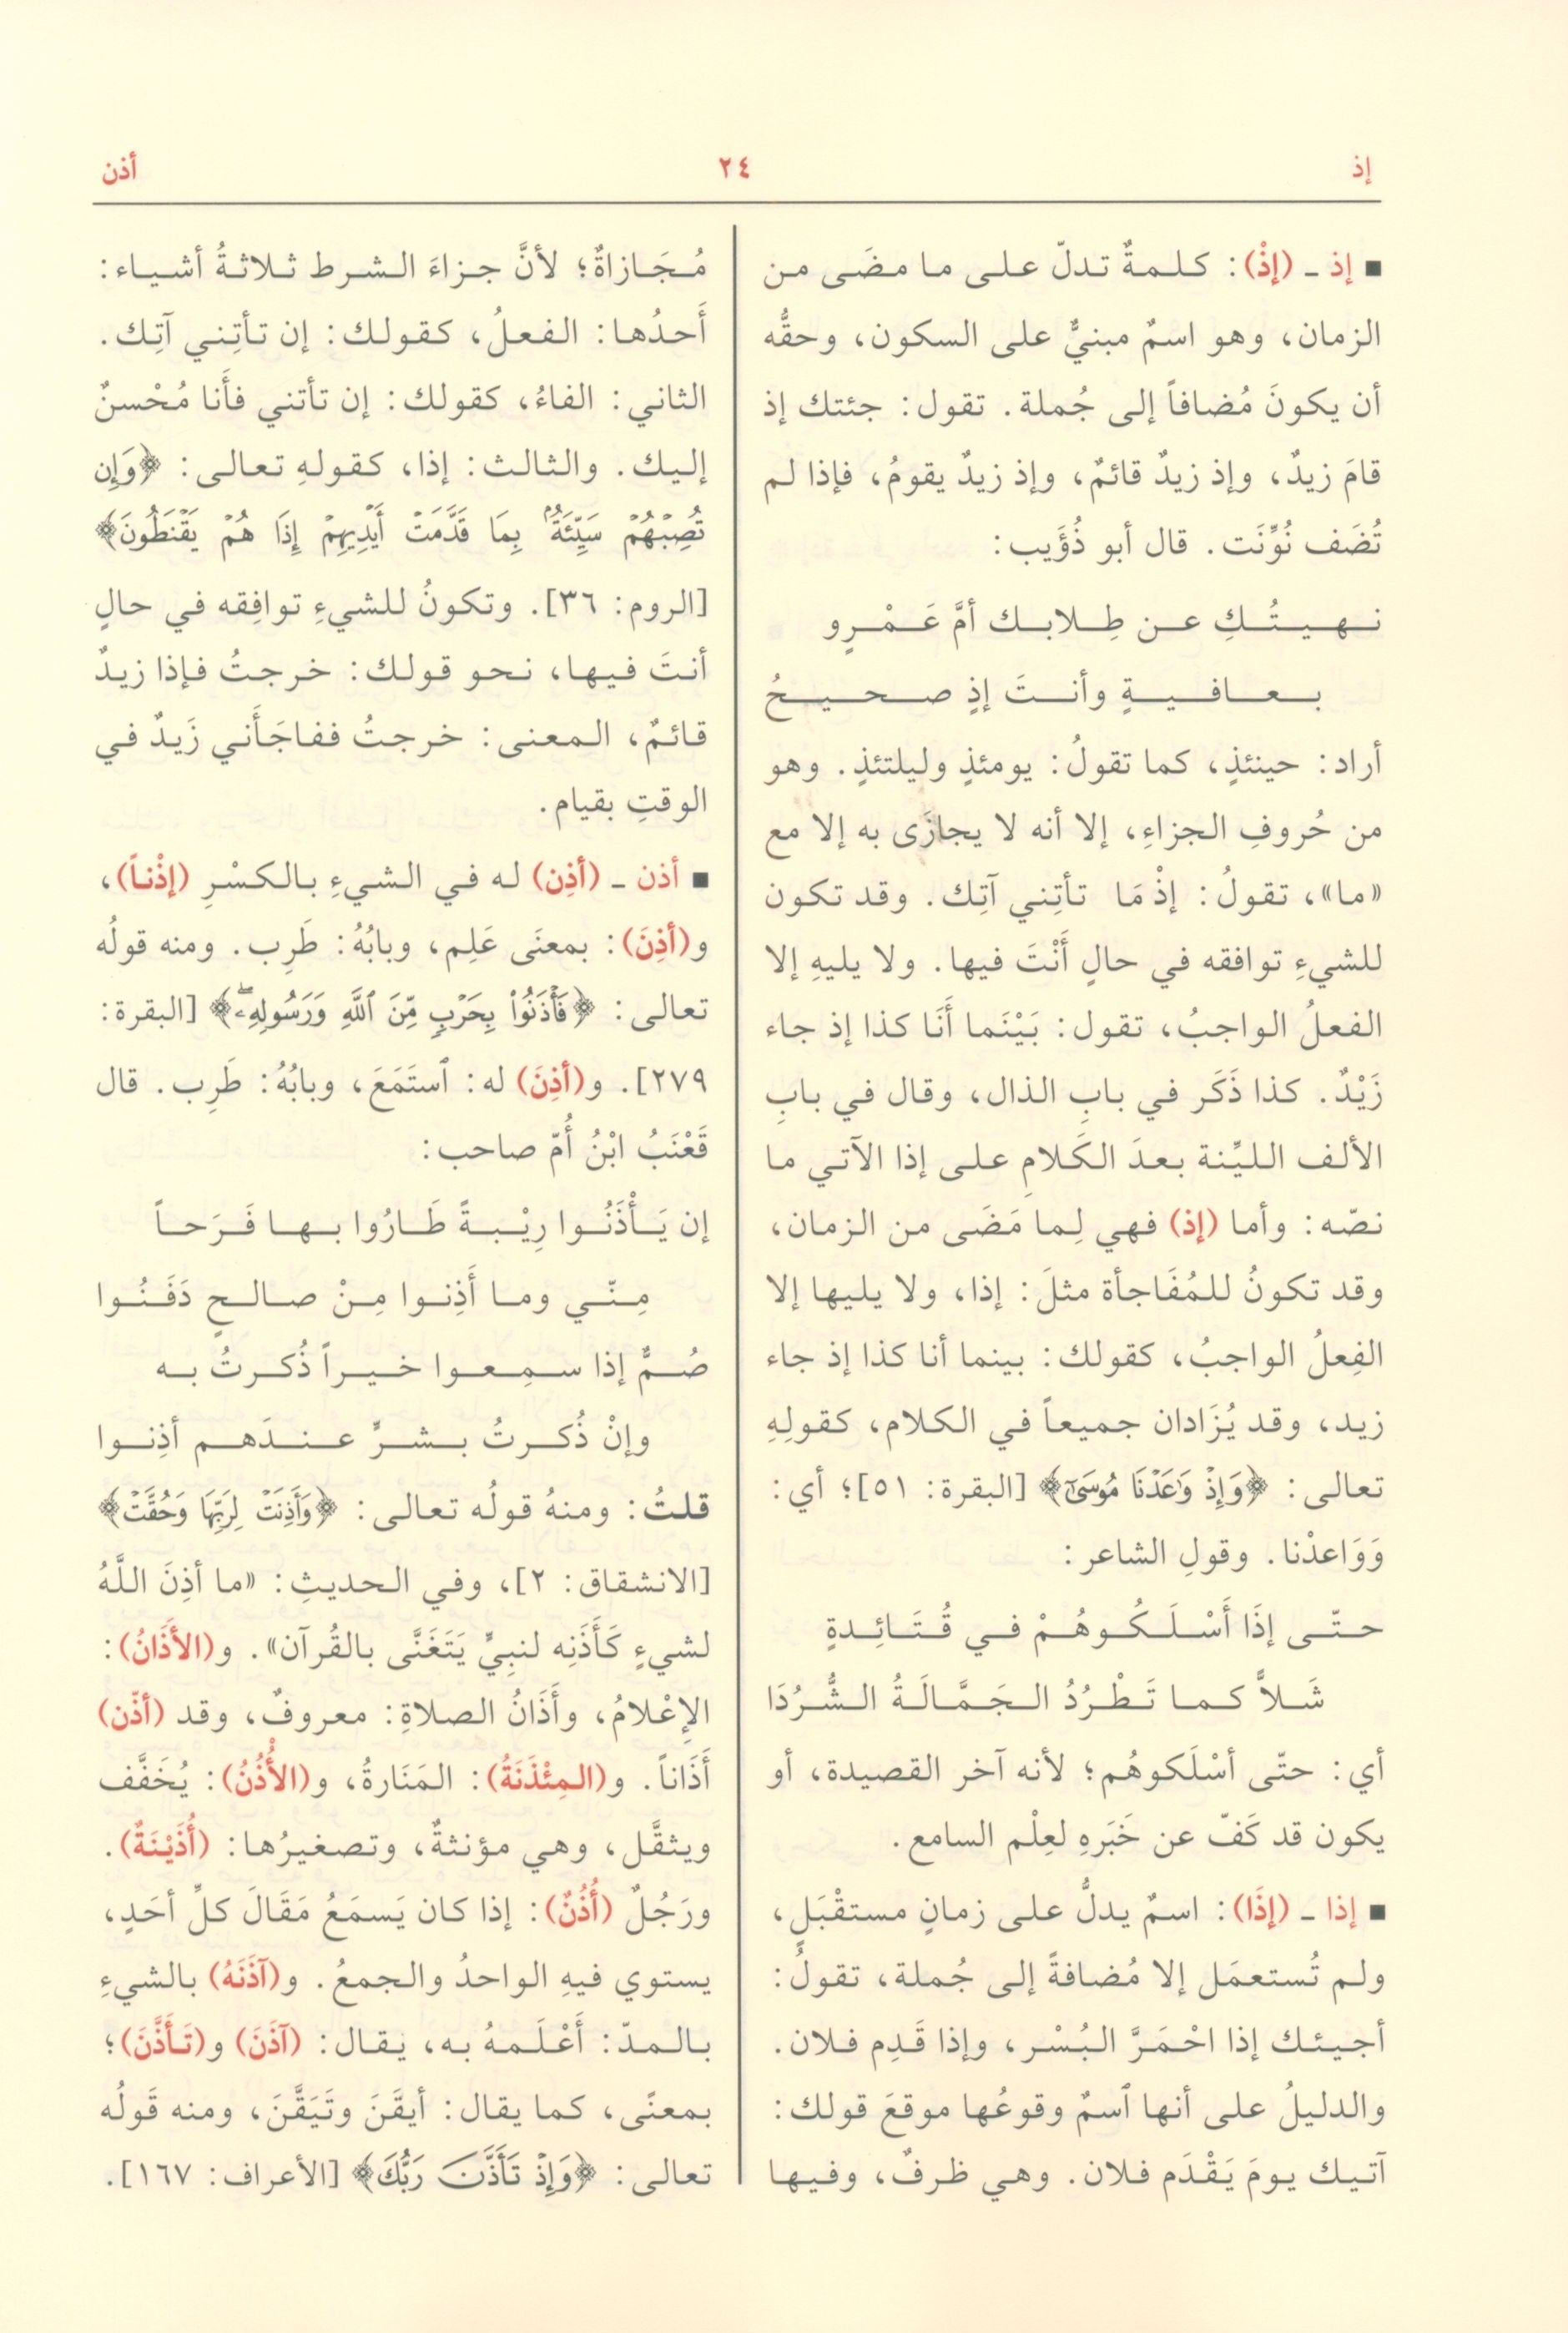 إذ ٢٤ أذن
■ إذ ـ (إذْ): كلمةٌ تدلّ على ما مضَى من
الزمان، وهو اسمٌ مبنيٌّ على السكون، وحقُّه
أن يكونَ مُضافاً إلى جُملة. تقول: جئتك إذ
قامَ زيدٌ، وإذ زيدٌ قائمٌ، وإذ زيدٌ يقومُ، فإذا لم
تُضَف نُوِّنَت. قال أبو ذُؤَيب:
نهيتُكِ عن طِلابك أمَّ عَمْرٍو
بعافيةٍ وأنتَ إذٍ صحيحُ
أراد: حينئذٍ، كما تقولُ: يومئذٍ وليلتئذٍ. وهو
من حُروفِ الجزاءِ، إلا أنه لا يجازَى به إلا مع
«ما»، تقولُ: إذْ مَا تأتِني آتِك. وقد تكون
للشيءِ توافقه في حالٍ أَنْتَ فيها. ولا يليهِ إلا
الفعلُ الواجبُ، تقول: بَيْنَما أَنَا كذا إذ جاء
زَيْدٌ. كذا ذَكَر في بابِ الذال، وقال في بابِ
الألف الليِّنة بعدَ الكَلامِ على إذا الآتي ما
نصّه: وأما (إذ) فهي لِما مَضَى من الزمان،
وقد تكونُ للمُفَاجأة مثلَ: إذا، ولا يليها إلا
الفِعلُ الواجبُ، كقولك: بينما أنا كذا إذ جاء
زيد، وقد يُزَادان جميعاً في الكلام، كقولِهِ
تعالى: ﴿وَإِذْ وَٰعَدْنَا مُوسَىٰٓ﴾ [البقرة: ٥١]؛ أي:
وَوَاعدْنا. وقولِ الشاعر:
حتّى إذَا أَسْلَكُوهُمْ في قُتَائِدةٍ
شَلاًّ كما تَطْرُدُ الجَمَّالَةُ الشُّرُدَا
أي: حتّى أسْلَكوهُم؛ لأنه آخر القصيدة، أو
يكون قد كَفّ عن خَبَرهِ لعِلْم السامع.
■ إذا ـ (إذَا): اسمٌ يدلُّ على زمانٍ مستقْبَلٍ،
ولم تُستعمَل إلا مُضافةً إلى جُملة، تقولُ:
أجيئك إذا احْمَرَّ البُسْر، وإذا قَدِم فلان.
والدليلُ على أنها ٱسمٌ وقوعُها موقعَ قولك:
آتيك يومَ يَقْدَم فلان. وهي ظرفٌ، وفيها
مُجَازاةٌ؛ لأنَّ جزاءَ الشرط ثلاثةُ أشياء:
أَحدُها: الفعلُ، كقولك: إن تأتِني آتِك.
الثاني: الفاءُ، كقولك: إن تأتني فأَنا مُحْسنٌ
إليك. والثالث: إذا، كقولهِ تعالى: ﴿وَإِن
تُصِبْهُمْ سَيِّئَةٌۢ بِمَا قَدَّمَتْ أَيْدِيهِمْ إِذَا هُمْ يَقْنَطُونَ﴾
[الروم: ٣٦]. وتكونُ للشيءِ توافِقه في حالٍ
أنتَ فيها، نحو قولك: خرجتُ فإذا زيدٌ
قائمٌ، المعنى: خرجتُ ففاجَأَني زَيدٌ في
الوقتِ بقيام.
■ أذن ـ (أذِن) له في الشيءِ بالكسْرِ (إذْناً)،
و(أذِنَ): بمعنَى عَلِم، وبابُهُ: طَرِب. ومنه قولُه
تعالى: ﴿فَأْذَنُوا۟ بِحَرْبٍ مِّنَ ٱللَّهِ وَرَسُولِهِۦۖ﴾ [البقرة:
٢٧٩]. و(أذِنَ) له: ٱستَمَعَ، وبابُهُ: طَرِب. قال
قَعْنَبُ ابْنُ أُمّ صاحب:
إن يَأْذَنُوا رِيْبةً طَارُوا بها فَرَحاً
مِنّي وما أَذِنوا مِنْ صالحٍ دَفَنُوا
صُمٌّ إذا سمِعوا خيراً ذُكرتُ به
وإنْ ذُكرتُ بشرٍّ عندَهم أذِنوا
قلتُ: ومنهُ قولُه تعالى: ﴿وَأَذِنَتْ لِرَبِّهَا وَحُقَّتْ﴾
[الانشقاق: ٢]، وفي الحديثِ: «ما أذِنَ اللَّهُ
لشيءٍ كَأَذَنِه لنبِيٍّ يَتَغَنَّى بالقُرآن». و(الأذَانُ):
الإِعْلامُ، وأَذَانُ الصلاةِ: معروفٌ، وقد (أذّن)
أَذَاناً. و(المِئْذَنَةُ): المَنَارةُ، و(الأُذْنُ): يُخَفَّف
ويثقَّل، وهي مؤنثةٌ، وتصغيرُها: (أُذَيْنَةٌ).
ورَجُلٌ (أُذُنٌ): إذا كان يَسمَعُ مَقَالَ كلِّ أحَدٍ،
يستوي فيهِ الواحدُ والجمعُ. و(آذَنَهُ) بالشيءِ
بالمدّ: أَعْلَمهُ به، يقال: (آذَنَ) و(تَأَذَّنَ)؛
بمعنًى، كما يقال: أيقَنَ وتَيَقَّنَ، ومنه قَولُه
تعالى: ﴿وَإِذْ تَأَذَّنَ رَبُّكَ﴾ [الأعراف: ١٦٧].